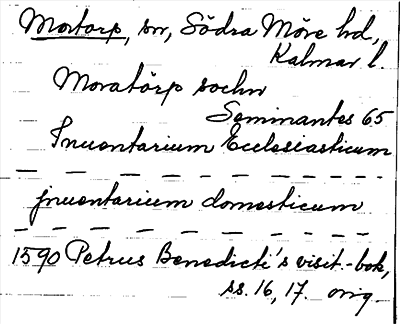 Mortorp, sn, Södra Möre hd,
Kalmar l.
Moratörp sochn
Seminantes 65
Inuentarium Ecclesiasticum
— — — — — — — — —
Jnuentarium domesticum
— — — — — — — — —
1590 Petrus Benedicti's visit.-bok,
ss. 16, 17. orig.